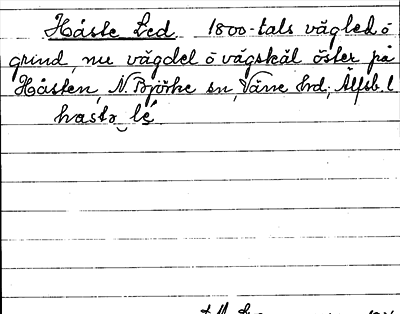 Håste Led 1800-tals vägled o
grind, nu vägdel o vägskäl öster på
Håsten, N. Björke sn, Väne hrd, Älfsb. l
hastə lé